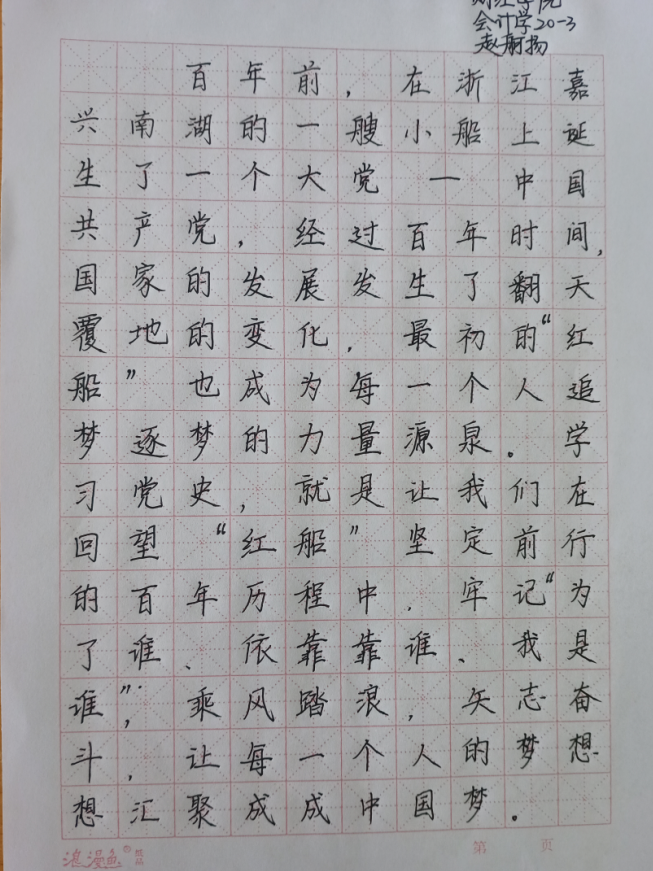 财经学院
会计学20-3
赵 扬
百年前，在浙江嘉
兴南湖的一艘小船上诞
生了一个大党—中国
共产党，经过百年时间，
国家的发展发生了翻天
覆地的变化，最初的“红
船”也成为每一个人追
梦逐梦的力量源泉。学
习党史，就是让我们在
回望“红船”坚定前行
的百年历程中，牢记“为
了谁、依靠靠谁、我是
谁”，乘风踏浪，矢志奋
斗，让每一个人的梦想
想汇聚成成中国梦。
浪漫鱼®
第 页